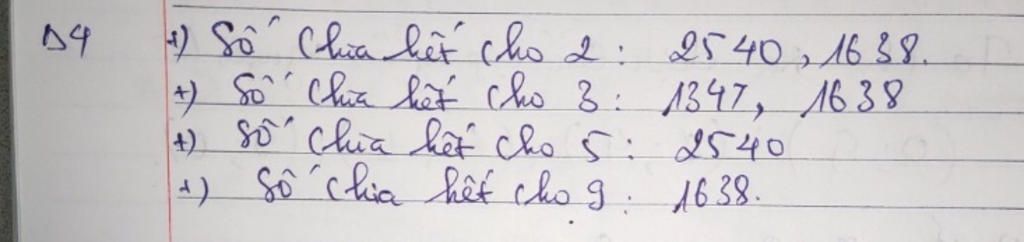 Δ4 +) Số chia hết cho 2 : 2540, 1638.
+) Số chia hết cho 3 : 1347, 1638
+) Số chia hết cho 5 : 2540
+) Số chia hết cho 9 : 1638.